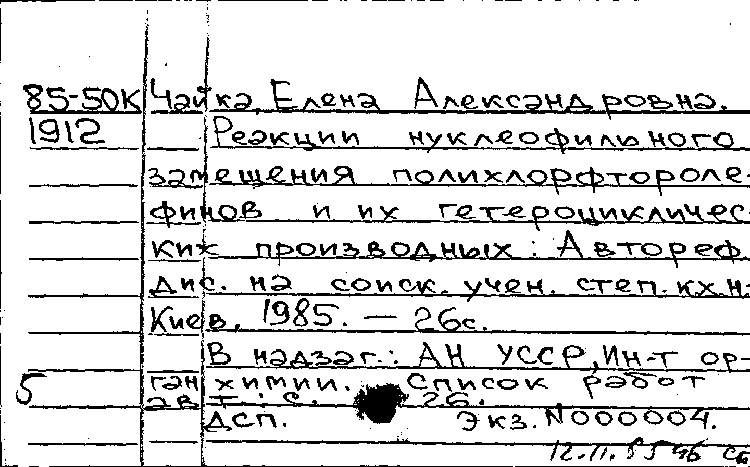 85-50К Чайка, Елена Александровна.
1912 Реакции нуклеофильного
замещения полихлорфтороле-
финов и их гетероцикличес-
ких производных: Автореф.
дис. на соиск. учен. степ. к.х.н.
Киев, 1985. — 26с.
В надзаг.: АН УССР, Ин-т ор-
5 ган химии. Список работ
авт.: с. 26.
ДСП. Экз. N000004.
12.11.85